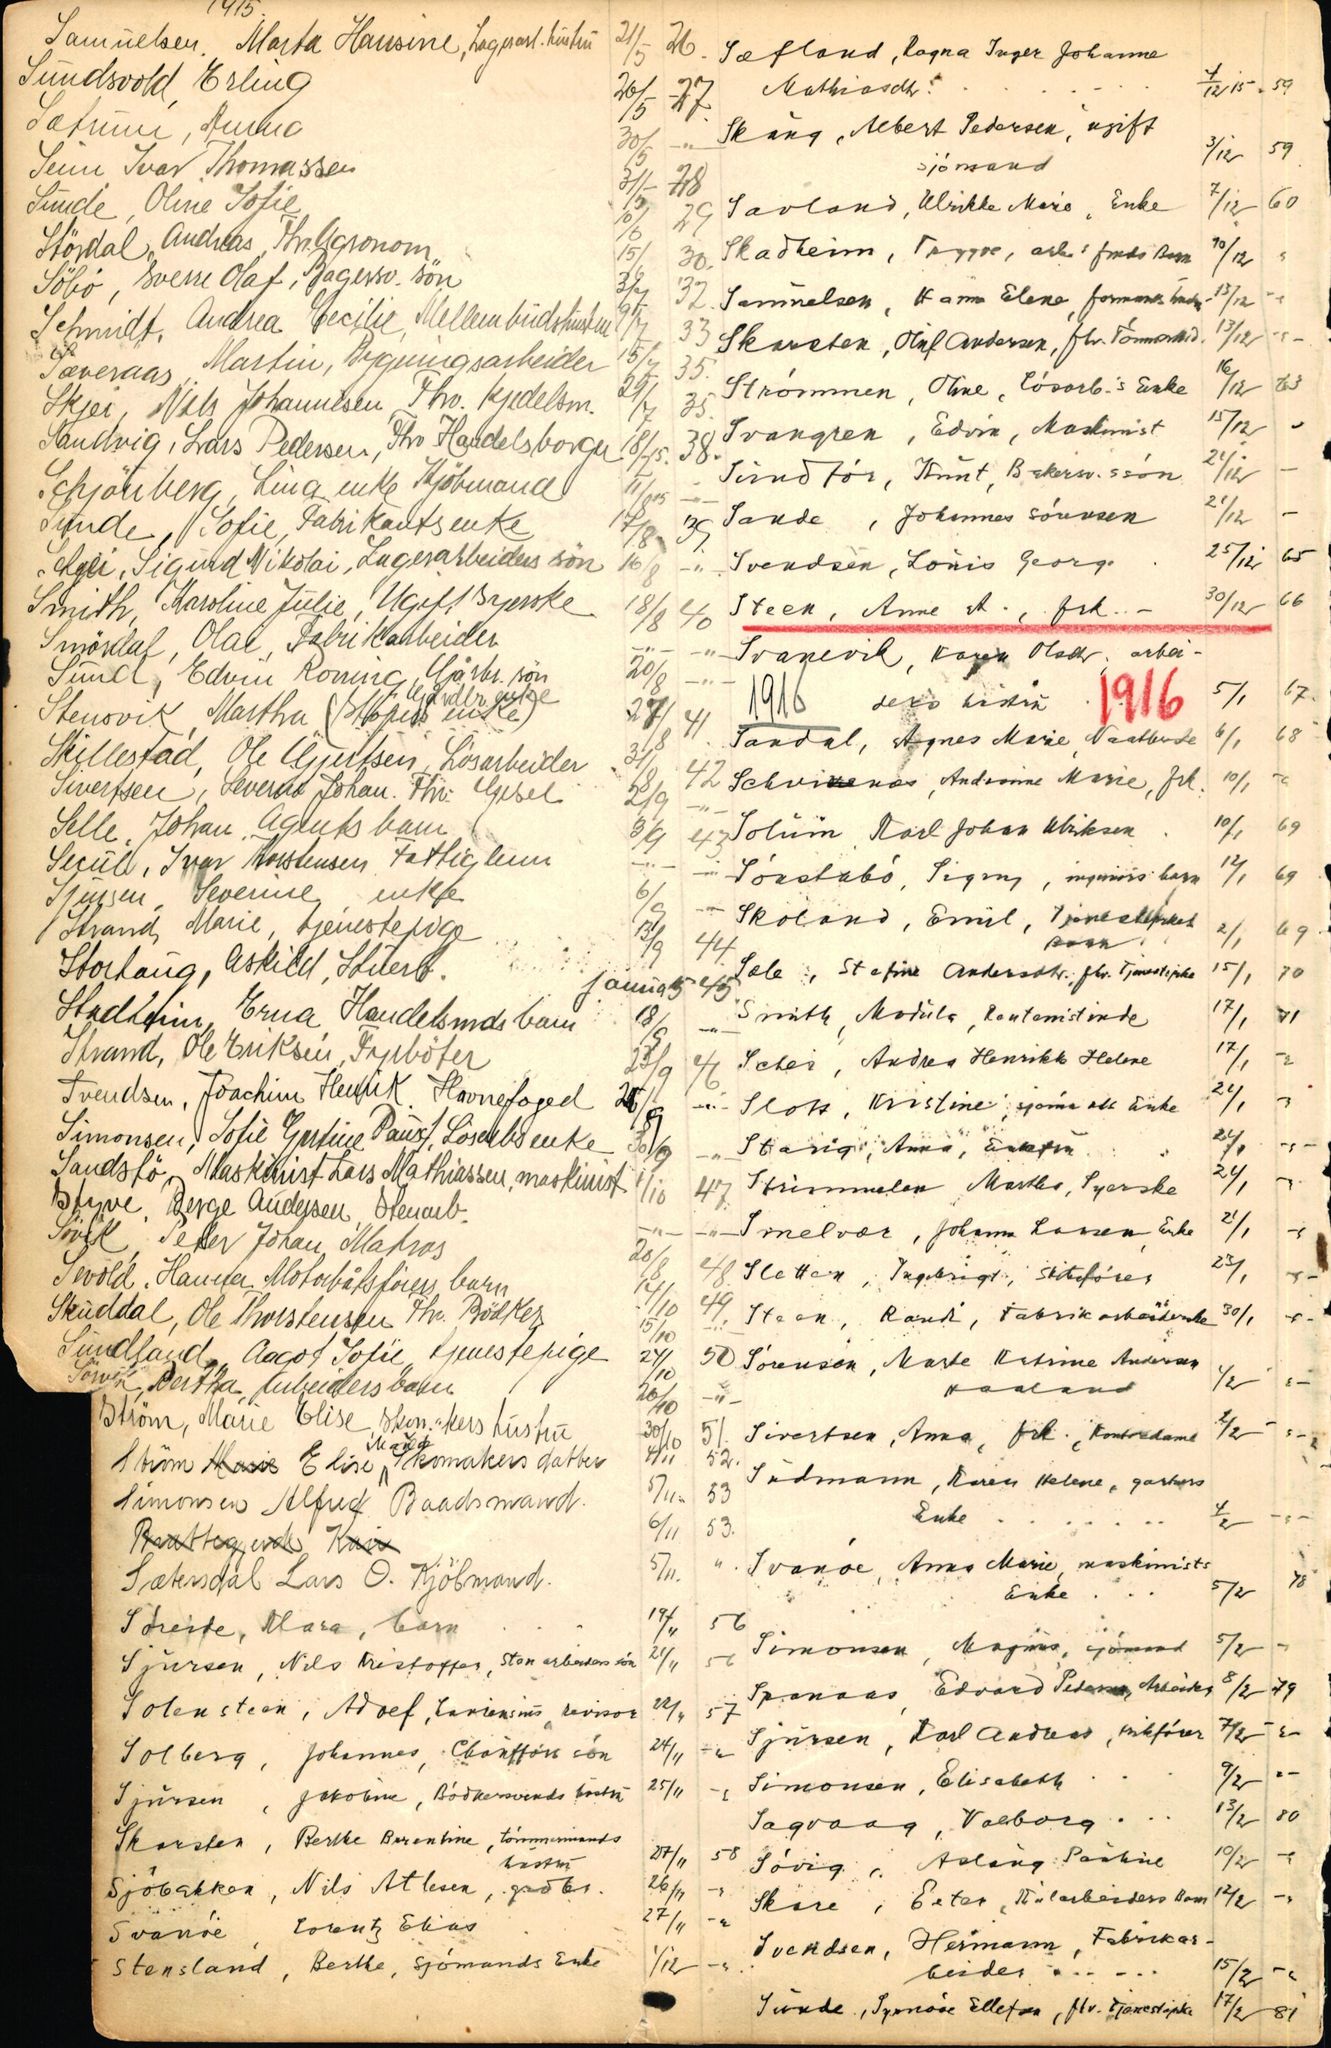 1915.
Samuelsen. Marta Hansine, Lagerarb. hustru 21/5 26.
Sundsvold, Erling 26/5 27
Sætrum, Anna 30/5 -"-
Seim Ivar Thomassen 31/5 28
Sunde, Oline Sofie 10/6 29
Stördal, Andreas, Fhv. Agronom 15/6 30.
Söbö, Sverre Olaf, Bagersv. sön 3/7 32
Schmidt, Andrea Cecilie, Mellembudshustru 9/7 33
Sæveraas, Martin, Bygningsarbeider 15/7 35.
Skjei, Nils Johannesen Fhv. Kjedelsm. 29/7 35.
Sandvig, Lars Pedersen, Fhv Handelsborger 18/15. 38.
Schjönberg, Lina enke Kjöbmand 11/ -"-
Sunde, Sofie, Fabrikants enke 17/8 39
Sigurd Nikolai, Lagerarbeiders sön 16/8 -"-
Smith, Karoline Julie, Ugift Syerske 18/8 40
Smördal, Olai, Fabrikarbeider -"- -"-
Sund, Edvin Roning, Gårbr. sön 20/8 -"-
Stensvik, Martha (Stöpers enke) Gårdbr enke 27/8 41
Skillestad, Ole Gjertsen, Lösarbeider 31/8 42
Sivertsen, Severin Johan. Fhv. Gjesel 2/9 -"-
Selle, Johan, Agents barn 3/9 43
Ivar Torstensen Fattiglem -"- -"-
Sjursen, Severine, enke 6/9 -"-
Strand, Marie, tjenestepige 13/9 44
Storhaug, Askild, Stuerb. januar 15 45
Stadheim, Erna, Handelsmds barn 18/9 -"-
Strand, Ole Eriksen, Fyrböter 23/9 46
Svendsen, Joachim Henrik. Havnefoged 28/9 -"-
Simonsen, Sofie Gurtine Paust, Lösarbs enke 30/9 -"-
Sandsfö, Maskinist Lars Mathiassen, maskinist 1/10 47
Styve, Berge Andersen, Stenarb. -"- -"-
Sövik, Peder Johan, Matros 20/8 48
Svold, Hanna, Motorbåtsförers barn 14/10 49
Skuddal, Ole Thorstensen Fhv. Bödker 15/10 -"-
Sundland, Aagot Sofie, tjenestepige 24/10 50
Sörvik, Bertha, Arbeidersbarn 26/10 -"-
Ström, Marie Elise Skomakers hustru 30/10 51.
Ström Marie Elise Marg. Skomakers datter 4/11 52.
Simonsen Alfred Baadsmand. 5/11 53
6/11 53.
Sætersdal Lars O. Kjöbmand. 5/11. "
Søreide, Klara, barn 19/11 56
Sjursen, Nils Kristoffer, Sten arbeiders sön 21/11 56
Solensteen, Adolf, Laurensius, revisor 22/11 57
Solberg, Johannes, Chaufförs sön 24/11 -"-
Sjursen, Jakobine, Bödkersvends hustru 25/11 -"-
Skarsten, Berthe Berentine, tömmermands hustru 27/11 58
Sjöbakken, Nils Atlesen, gaardbr. 26/11 -"-
Svanöe, Lorentz Elias 27/11 -"-
Stensland, Berthe, Sjömands Enke 1/12 -"-
Sæfland, Ragna Inger Johanne
Mathiasdtr. 4/12 15 - 59
Skång, Albert Pedersen, ugift
sjömand 3/12 59
Savland, Ulrikke Marie, Enke 7/12 60
Skadheim, Trygve, arb. fmds Barn 10/12 "
Samuelsen, Hanna Elene, formands hustru 13/12 -"-
Skarsten, Oluf Andersen, fhv. Tömmermd. 13/12 -"-
Strömmen, Oline, Lösarb.'s Enke 16/12 63
Svangren, Edvin, Maskinist 15/12 "
Sundför, Knut, Bakersv. sön 21/12 -
Sande, Johannes Sörensen 21/12 -
Svendsen, Louis Georg 25/12 65
Steen, Anne A., frk. - 30/12 66
Svanevik, Karen Olsdtr, arbei-
1916 ders hustru 1916 5/1 67.
Sandal, Agnes Marie 6/1 68
Andrine Marie, frk. 10/1 -"-
Solum Karl Johan Ulriksen 10/1 69
Sönstabö, Signy, ingeniörs barn 12/1 69
Skoland, Emil, Tjenestepikes
barn 2/1 69
Sale, Stefine Andersdtr., fhv. Tjenestepike 15/1 70
Smith, Modula, Kontoristinde 17/1 71
Schei, Andrea Henrikke Helene 17/1 -"-
Slott, Kristine, Enke 24/1 -"-
Starig, Anna, 24/1 -"-
Strimmelen Martha, Syerske 24/1 -"-
Smelvær, Johanna Larsen, Enke 21/1 -"-
Sletten, Ingebrigt, Skibsförer 23/1 -"-
Steen, Randi, Fabrikarbeiderske 30/1 -"-
Sörensen, Marte Katrine Andersen
Haaland 1/2 -"-
Sivertsen, Anna, frk., Kontordame 2/2 -"-
Südmann, Karen Helene, gartners
Enke 4/2 -"-
Svanöe, Anna Marie, maskinists
Enke 5/2 78
Simonsen, Magnus, sjömand 5/2 -
Spanaas, Edvard Pedersen, Arbeider 8/2 79
Sjursen, Karl Andreas, 7/2 -"-
Simonsen, Elisabeth 9/2 -"-
Sagvaag, Valborg 13/2 80
Sövig, Aslaug Pauline 10/2 -"-
Skare, Peter, Kularbeiders barn 12/2 -"-
Svendsen, Hermann, Fabrikar-
beider 15/2 -"-
Sunde, Synnöve Ellefsen, fhv. Tjenestepike 17/2 81